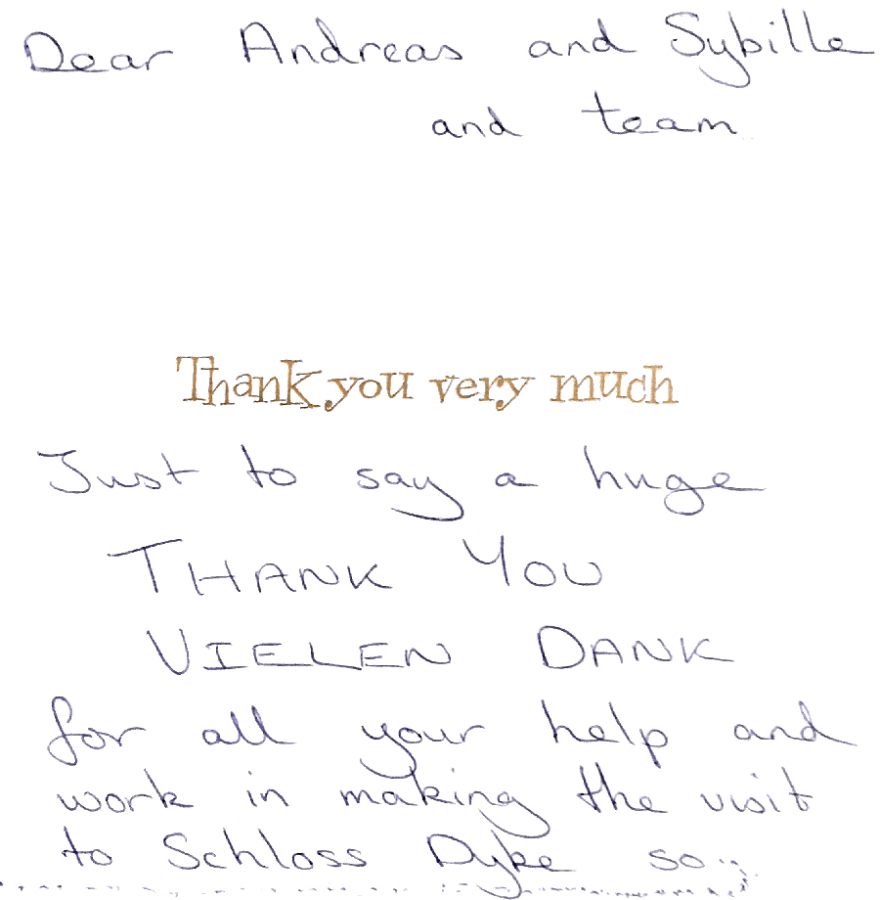 Dear Andreas and Sybille
and team
Thank you very much
Just to say a huge
THANK YOU
VIELEN DANK
for all your help and
work in making the visit
to Schloss Dyke so